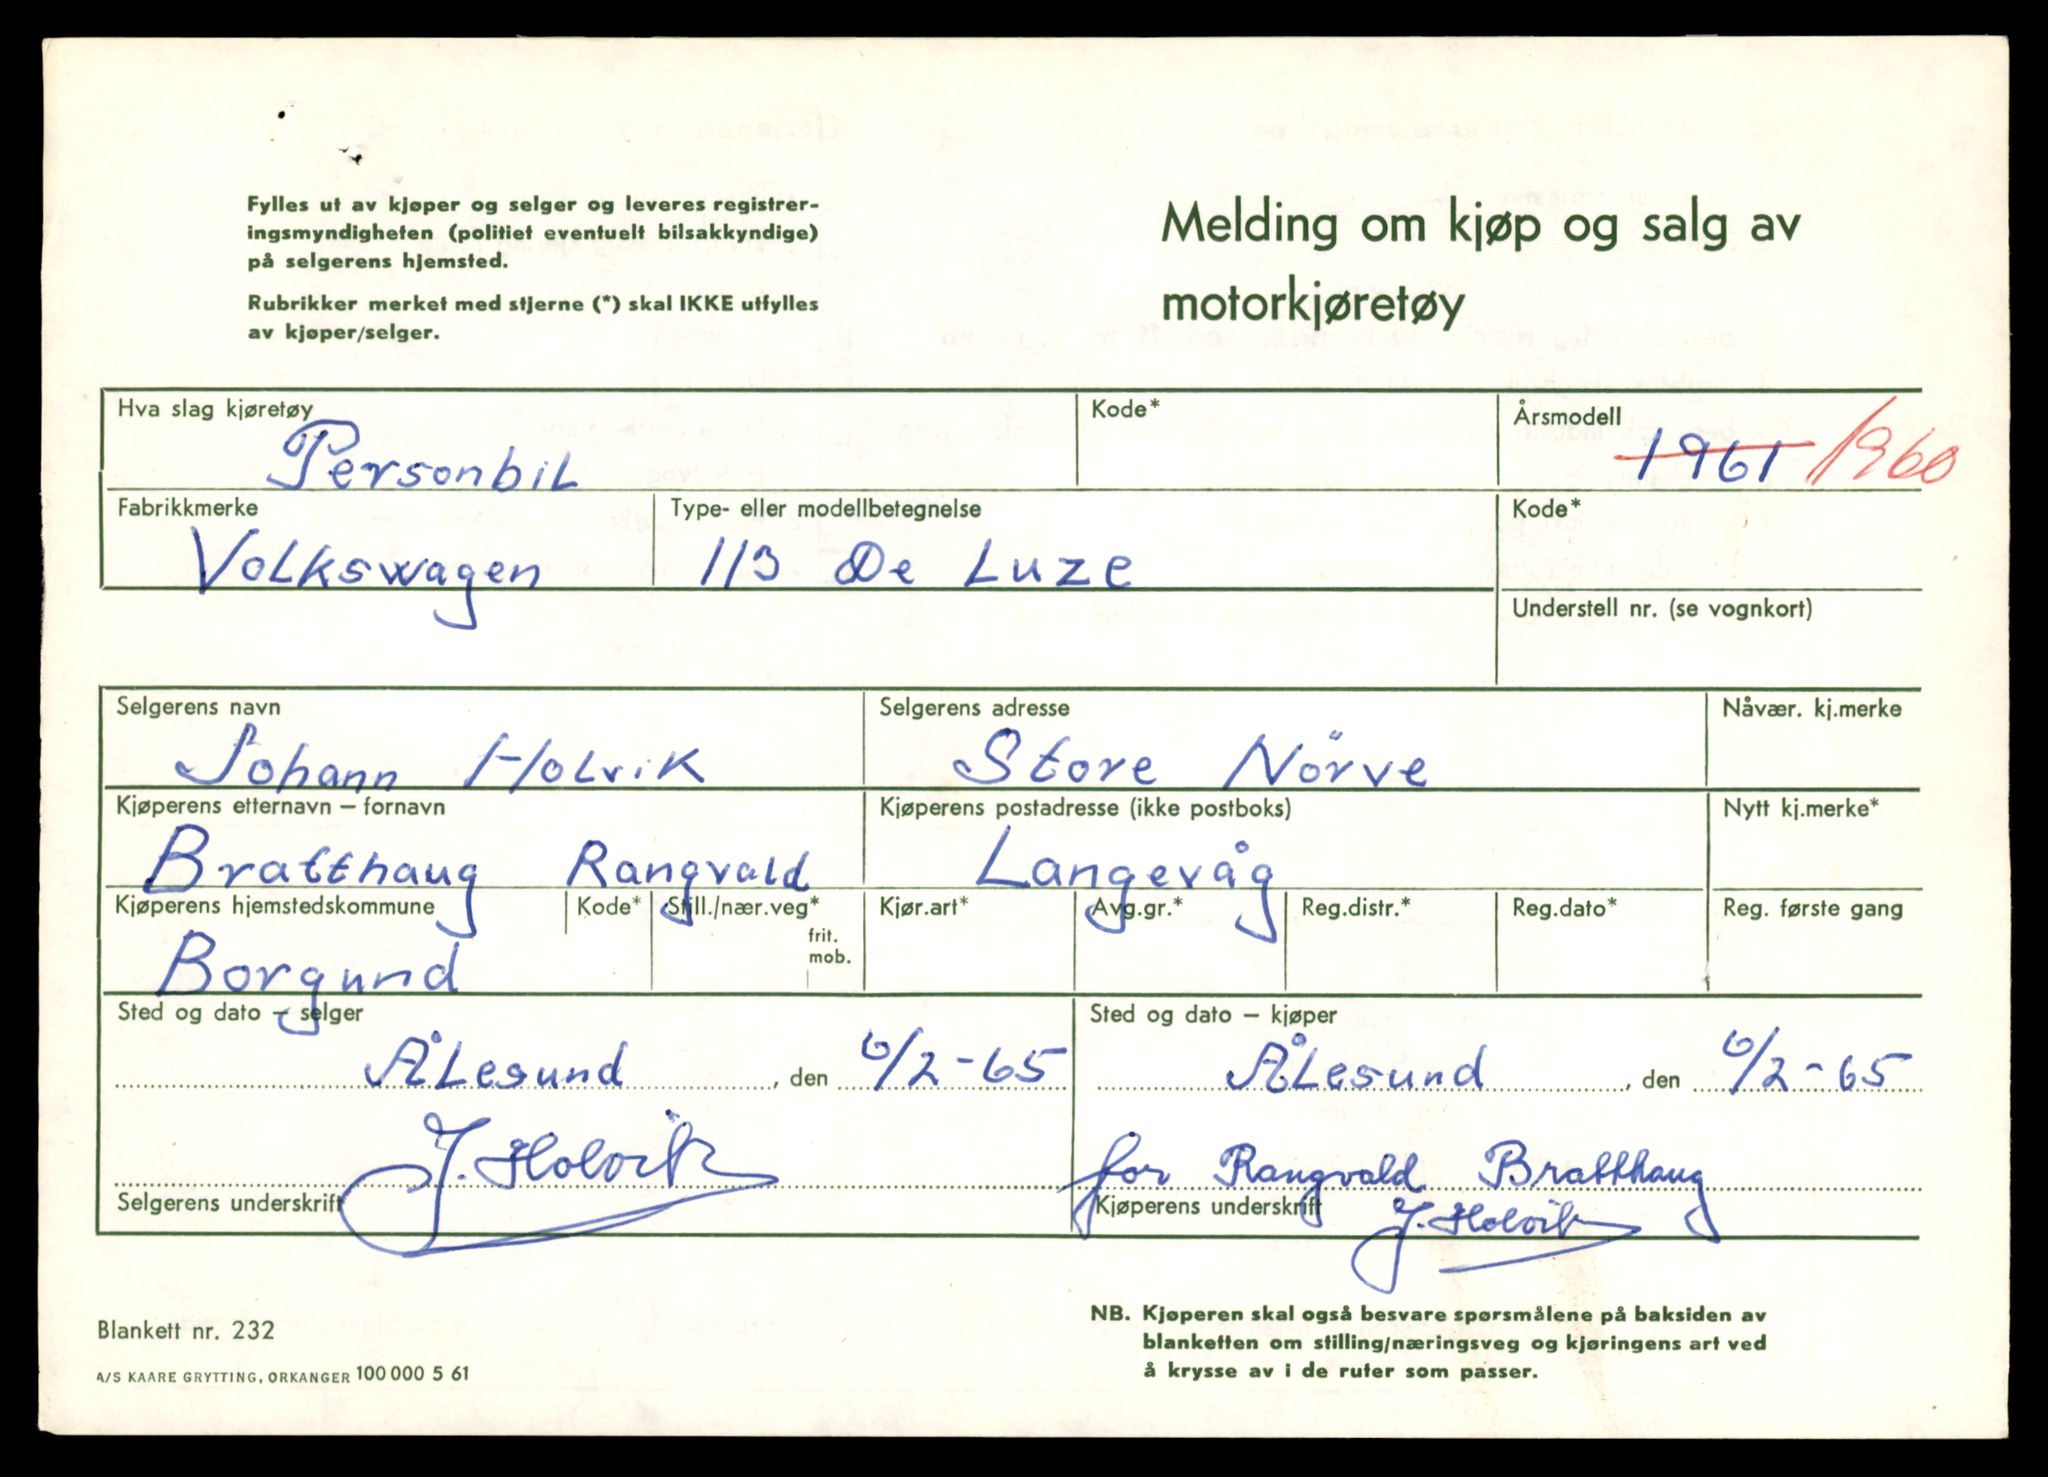 Fylles ut av kjøper og selger og leveres registrer-
ingsmyndigheten (politiet eventuelt bilsakkyndige)
på selgerens hjemsted.
Rubrikker merket med stjerne (*) skal IKKE utfylles
av kjøper/selger.
Melding om kjøp og salg av
motorkjøretøy
Hva slag kjøretøy
Personbil
Kode*
Årsmodell
1961 1960
Fabrikkmerke
Volkswagen
Type- eller modellbetegnelse
113 De Luze
Kode*
Understell nr. (se vognkort)
Selgerens navn
Johann Holvik
Selgerens adresse
Store Nörve
Nåvær. kj.merke
Kjøperens etternavn – fornavn
Bratthaug Rangvald
Kjøperens postadresse (ikke postboks)
Langevåg
Nytt kj.merke*
Kjøperens hjemstedskommune
Borgund
Kode*
Still./nær.veg*
frit.
mob.
Kjør.art*
Avg.gr.*
Reg.distr.*
Reg.dato*
Reg. første gang
Sted og dato – selger
Ålesund, den 6/2-65
Sted og dato – kjøper
Ålesund, den 6/2-65
J. Holvik
Selgerens underskrift
for Rangvald Bratthaug
Kjøperens underskrift
J. Holvik
Blankett nr. 232
A/S KAARE GRYTTING, ORKANGER 100 000 5 61
NB. Kjøperen skal også besvare spørsmålene på baksiden av
blanketten om stilling/næringsveg og kjøringens art ved
å krysse av i de ruter som passer.